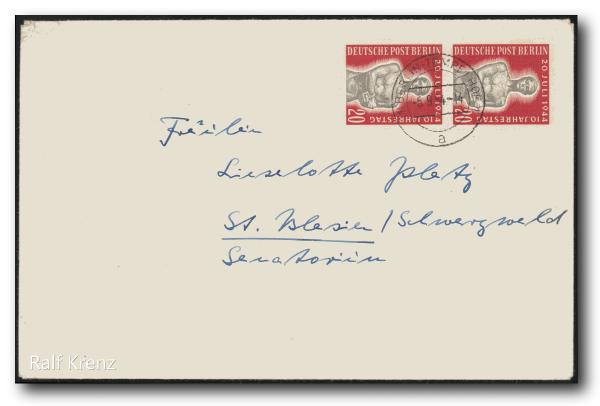 DEUTSCHE POST BERLIN DEUTSCHE POST BERLIN
20. JULI 1944 20. JULI 1944
10. JAHRESTAG 10. JAHRESTAG
20 20
a
Fräulein
Lieselotte Platz
St. Blasien / Schwarzwald
Sanatorium
Ralf Krenz